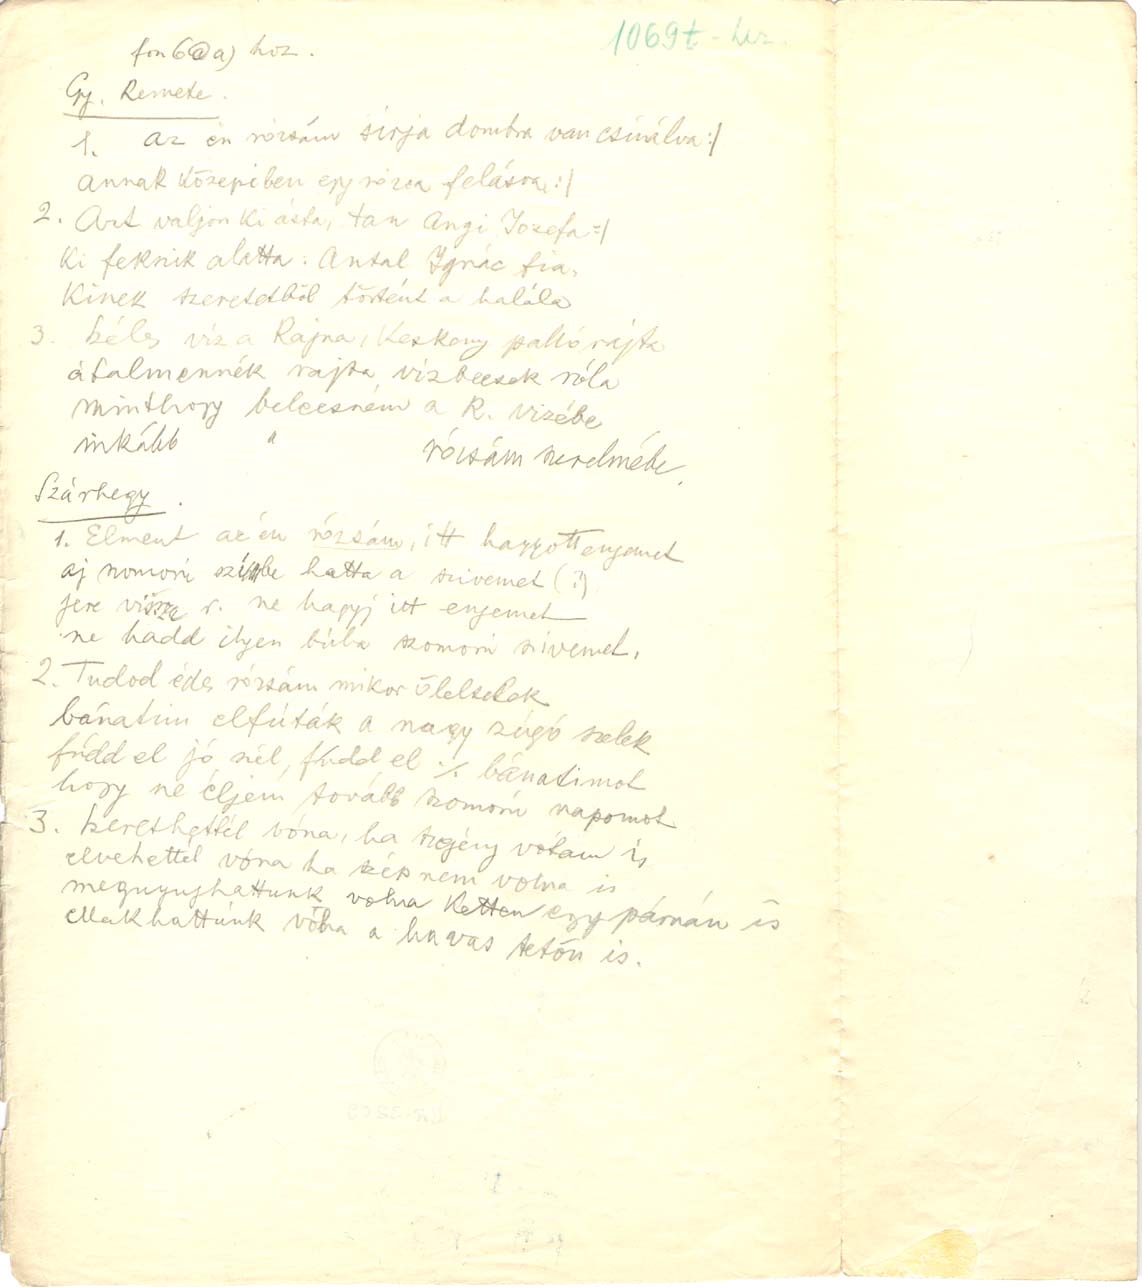 fon 6 a) hoz.
1069t - hez.
Gy. Remete.
1. Az én rózsám sirja dombra van csinálva :/
annak közepiben egy rózsa felásva :/
2. Azt valjon ki ásta, tán Angi Jozefa :/
Ki fekszik alatta : Antal Ignác fia,
Kinek szeretetből történt a halála
3. széles víz a Rajna, Keskeny palló rajta
átalmennék rajta vízbeesek róla
minthogy beleesném a R. vizébe
inkább " rózsám szerelmébe.
Szárhegy.
1. Elment az én rózsám, itt hagyott engemet
aj szomorú színbe hatta a szivemet (?)
jere vissza r. ne hagyj itt engemet
ne hadd ilyen búba szomorú szivemet.
2. Tudod édes rózsám mikor öleltelek
bánatim elfúták a nagy zúgó szelek
fúdd el jó szél, fúdd el ./. bánatimot
hogy ne éljem tovább szomorú napomot
3. szerethettél vóna, ha szegény vótam is
elvehettél vóna ha szép nem volna is
megnyughattunk volna ketten egy párnán is
ellakhattunk vóna a havas tetőn is.